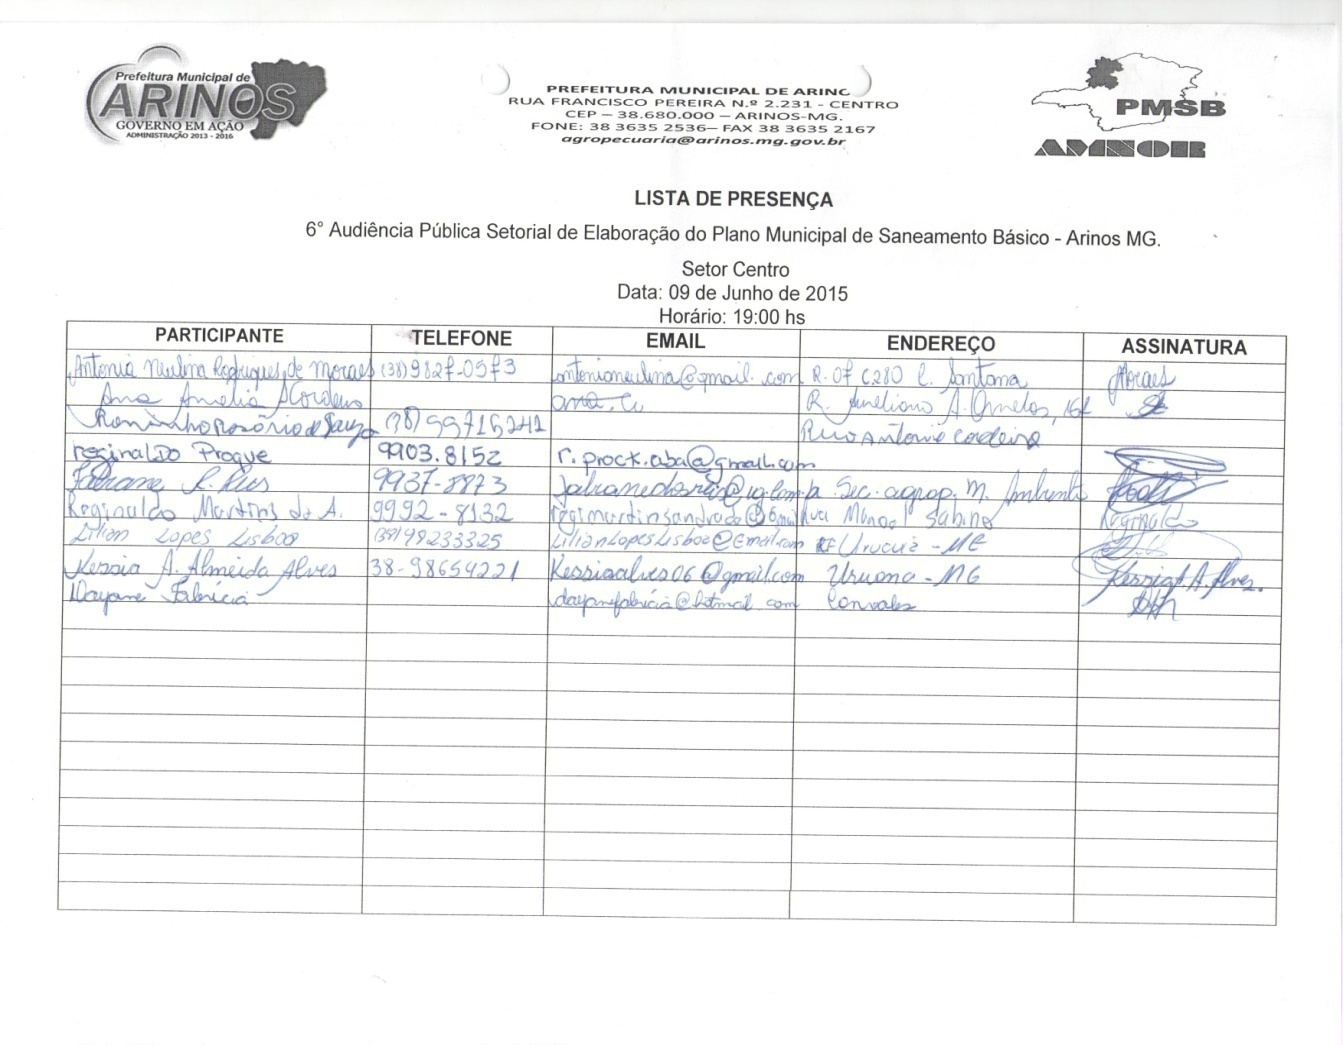 Prefeitura Municipal de
ARINOS
GOVERNO EM AÇÃO
ADMINISTRAÇÃO 2013 - 2016
PREFEITURA MUNICIPAL DE ARINO
RUA FRANCISCO PEREIRA N.º 2.231 - CENTRO
CEP – 38.680.000 – ARINOS-MG.
FONE: 38 3635 2536– FAX 38 3635 2167
agropecuaria@arinos.mg.gov.br
PMSB
AMNOR
LISTA DE PRESENÇA
6° Audiência Pública Setorial de Elaboração do Plano Municipal de Saneamento Básico - Arinos MG.
Setor Centro
Data: 09 de Junho de 2015
Horário: 19:00 hs
PARTICIPANTE TELEFONE EMAIL ENDEREÇO ASSINATURA
Antonia Neulina Rodrigues de Moraes (38)9827-0573 antonianeulina@gmail.com R. 07 C280 C. Santana Moraes
Ana Amelia R. Aureliano A. Ornelas,
Roninho Rosário de Souza (38) Rua Antonio Cordeiro
reginaldo Proque 9903.8152 r.prock.aba@gmail.com
9937-8873 Sec. agrop. M. Ambiente
Reginaldo Martins de A. 9992-8132 regimartinsandrade@ Rua Manoel Sabino Reginaldo
Lilian Lopes Lisboa (38)99233325 LilianLopesLisboa@Gmail.com
Kessia A. Almeida Alves 38-98654221 Kessiaalves06@gmail.com Uruana-MG Kessia A. Alves.
Dayane Fabrícia dayanefabricia@hotmail.com Convales